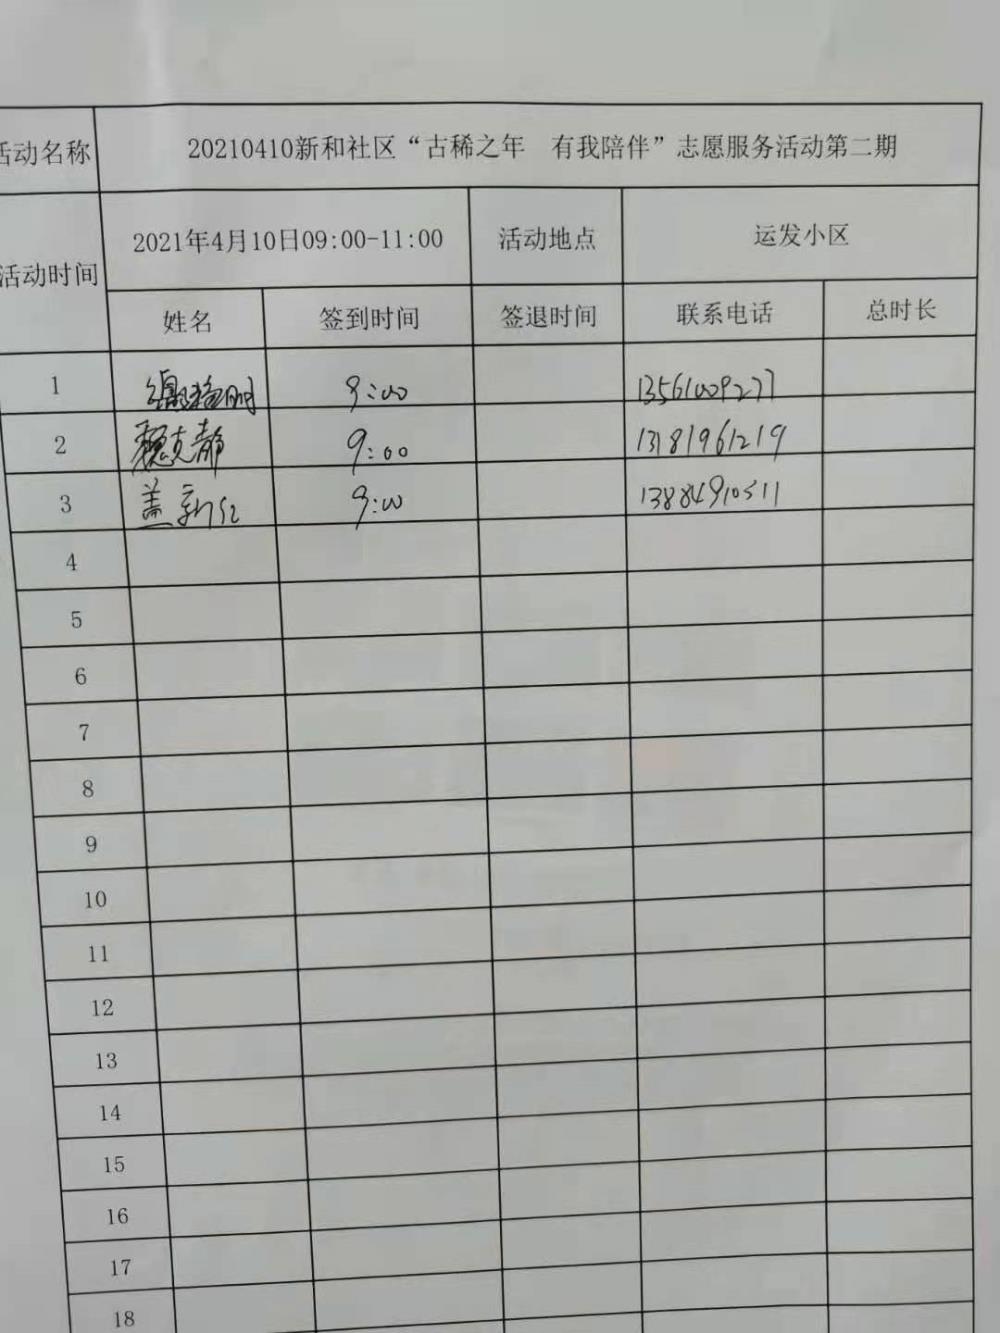 活动名称 20210410新和社区“古稀之年 有我陪伴”志愿服务活动第二期
活动时间 2021年4月10日09:00-11:00 活动地点 运发小区
姓名 签到时间 签退时间 联系电话 总时长
1 9:00 13561009277
2 9:00 13181961219
3 盖新红 9:00 13884910511
4
5
6
7
8
9
10
11
12
13
14
15
16
17
18